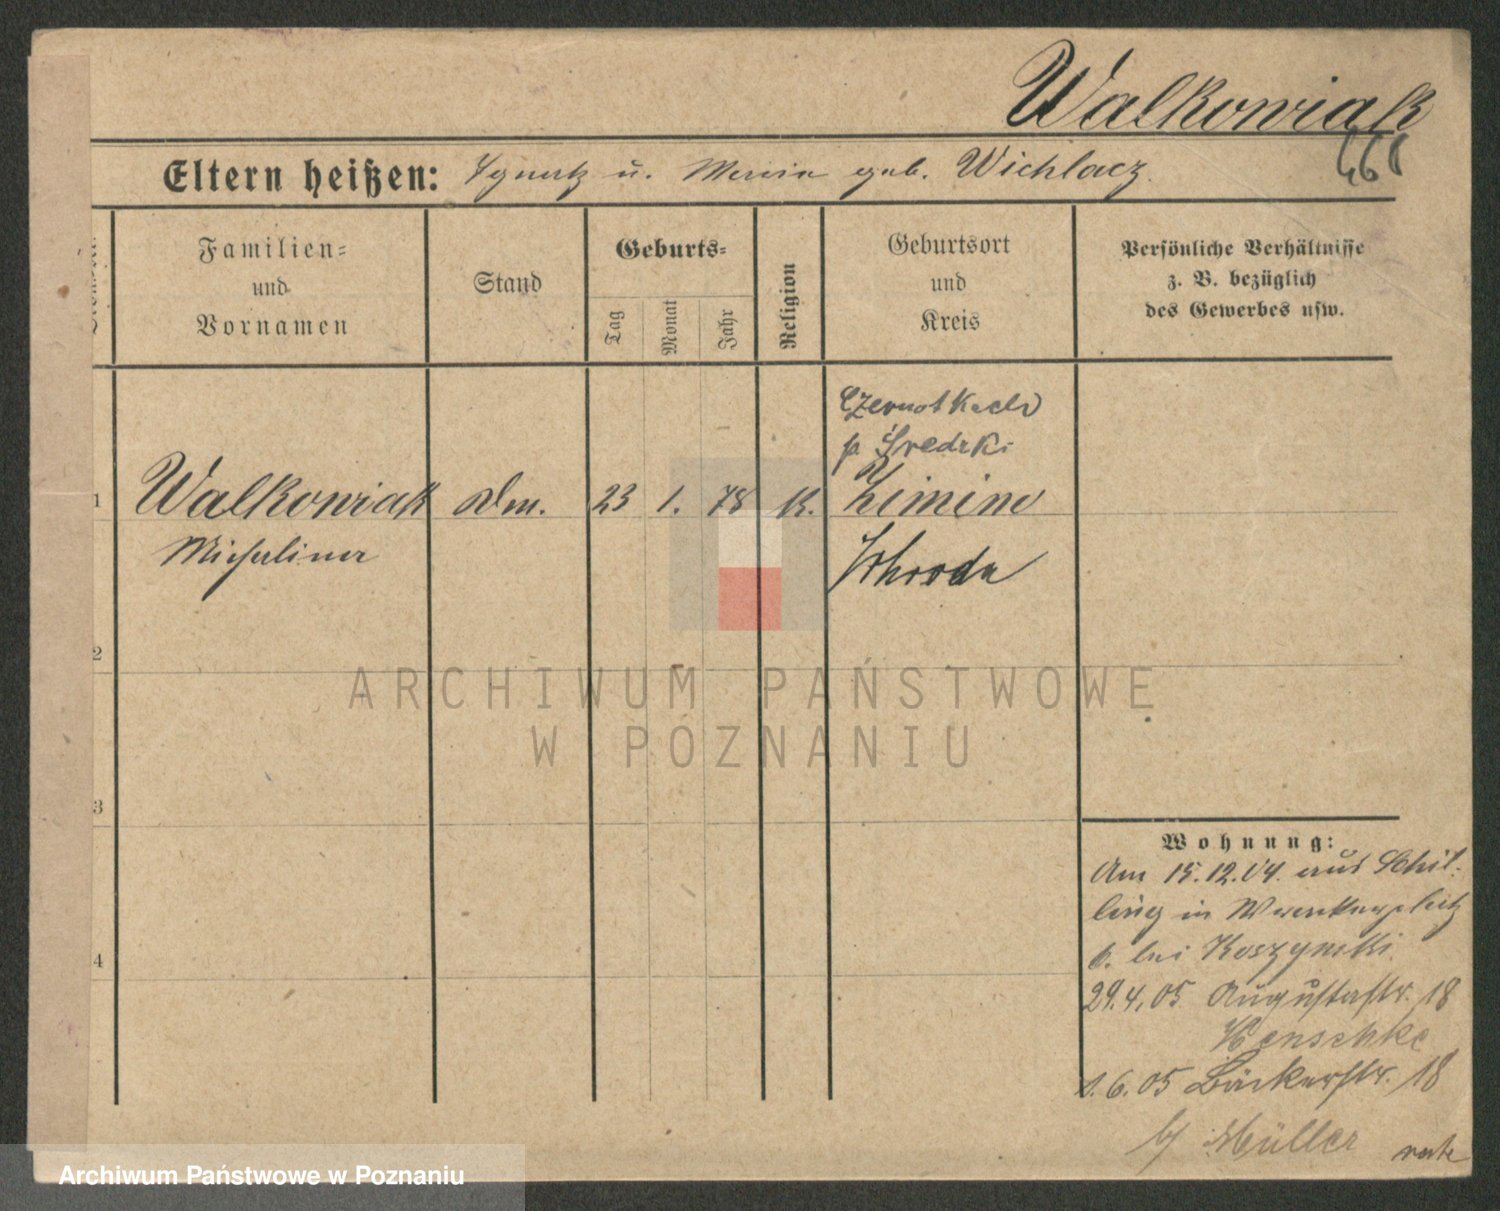 Walkowiak
468
Eltern heißen: Ignatz u. Maria geb. Wichlacz.
Familien= und Vornamen
Stand
Geburts=
Tag
Monat
Jahr
Religion
Geburtsort und Kreis
Persönliche Verhältnisse z. B. bezüglich des Gewerbes usw.
1
Walkowiak
Michalina
23 1. 78
K.
Zimino
Schroda
2
3
4
Wohnung:
Am 15.12.04. aus Schil-
ling in
b. bei
29.4.05 Augustastr. 18
Henschke
1.6.05 Bäckerstr. 18
b/ Müller
ARCHIWUM PAŃSTWOWE
W POZNANIU
Archiwum Państwowe w Poznaniu